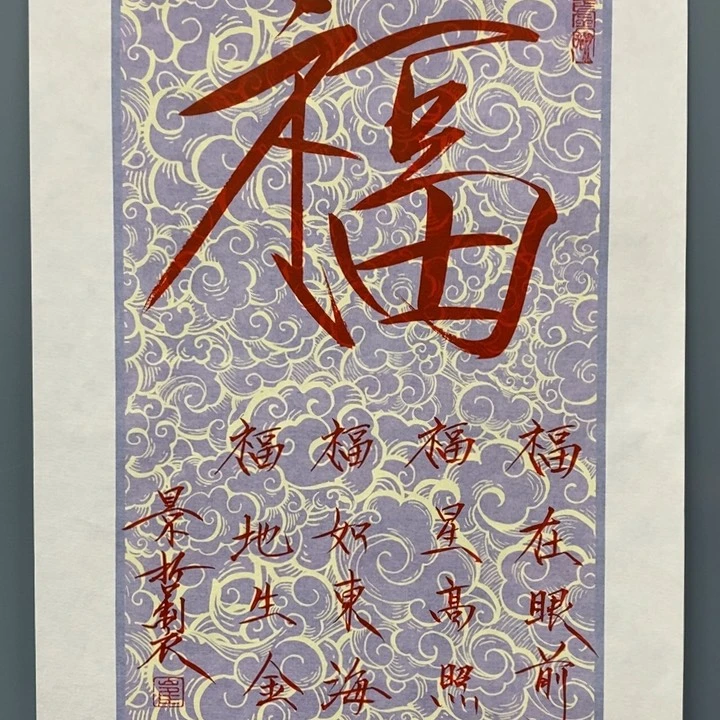 福
福在眼前
福星高照
福如東海
福地生金